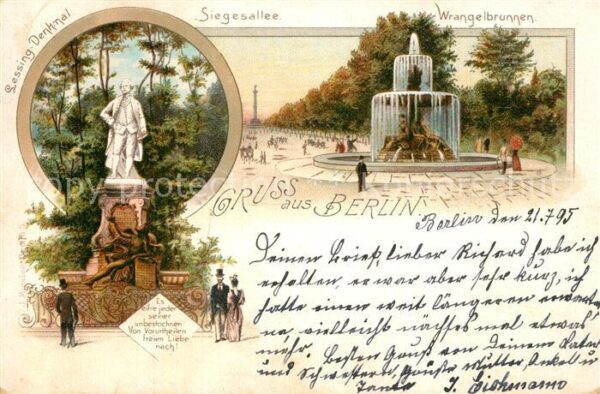 Lessing-Denkmal
Siegesallee.
Wrangelbrunnen.
GRUSS aus BERLIN
Es
eifre jeder
seiner
unbestochnen
Von Vorurtheilen
freien Liebe
nach!
Berlin den 21.7.95
Deinen Brief, lieber Richard habe ich
erhalten, er war aber sehr kurz, ich
hatte einen weit längeren
vielleicht nächstes mal etwas
mehr. Besten Gruß von Deinem Vater
und Schwestern, Grüße Mutter, Onkel u
Tante J.